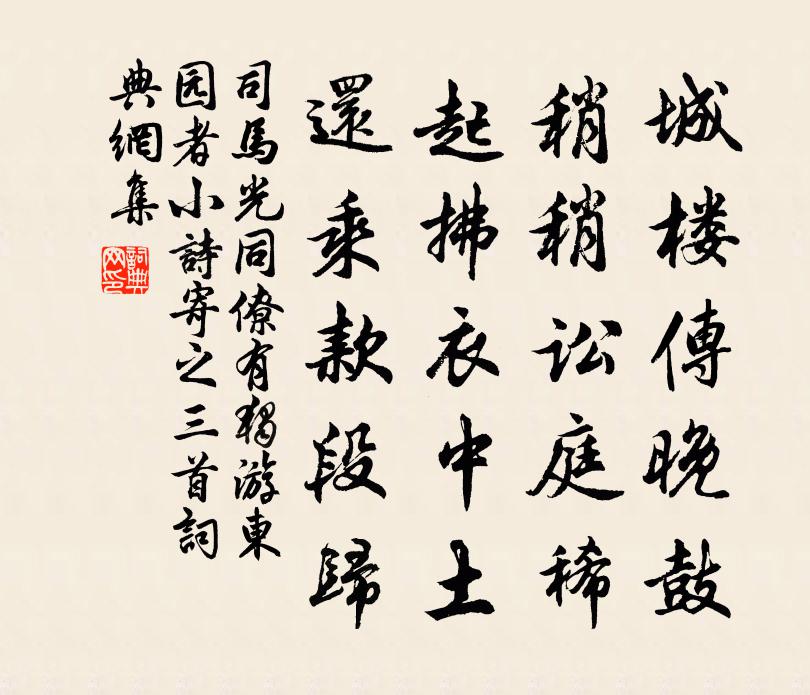 城楼傳晚鼓
稍稍訟庭稀
起拂衣中土
還乘款段歸
司馬光同僚有獨游東
园者小詩寄之三首詞
典網集
詞典
网印